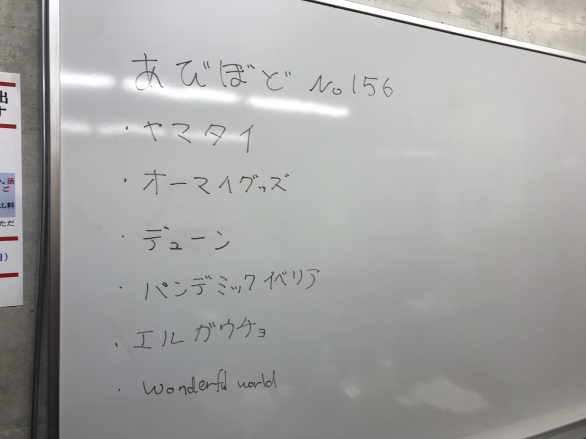 あびぼど No156
・ヤマタイ
・オーマイグッズ
・デューン
・パンデミックイベリア
・エルガウチョ
・wonderful world
出
ナ